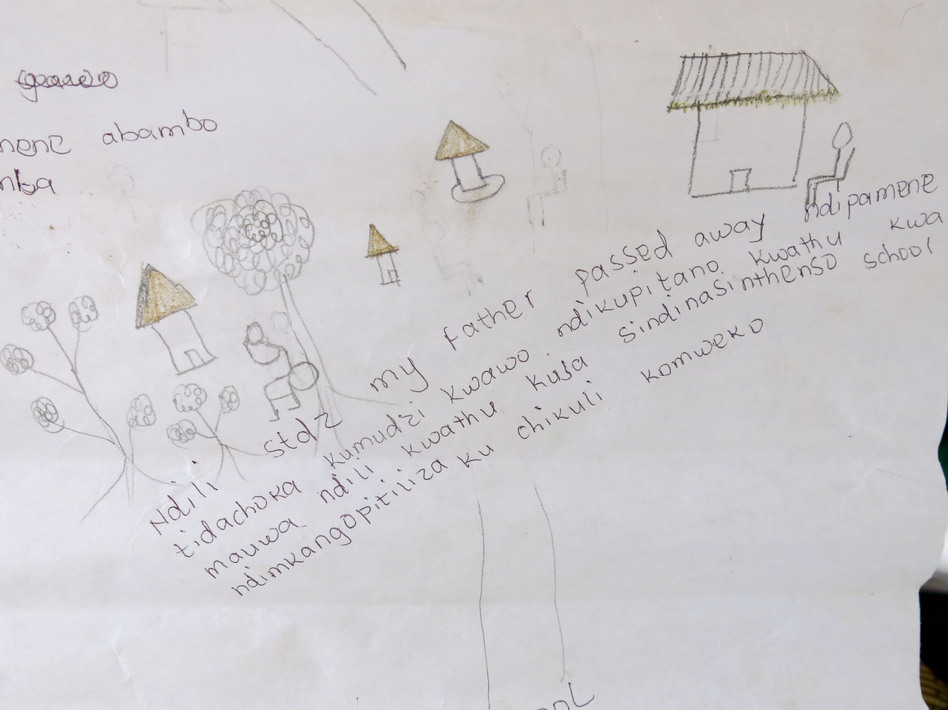 abambo
Ndili std2 my father passed away ndipamene
tidachoka kumudzi kwawo ndikupitano kwathu kwa
mauwa ndili kwathu kusa sindinasinthenso school
ndimkangopitiliza ku chikuli komweko